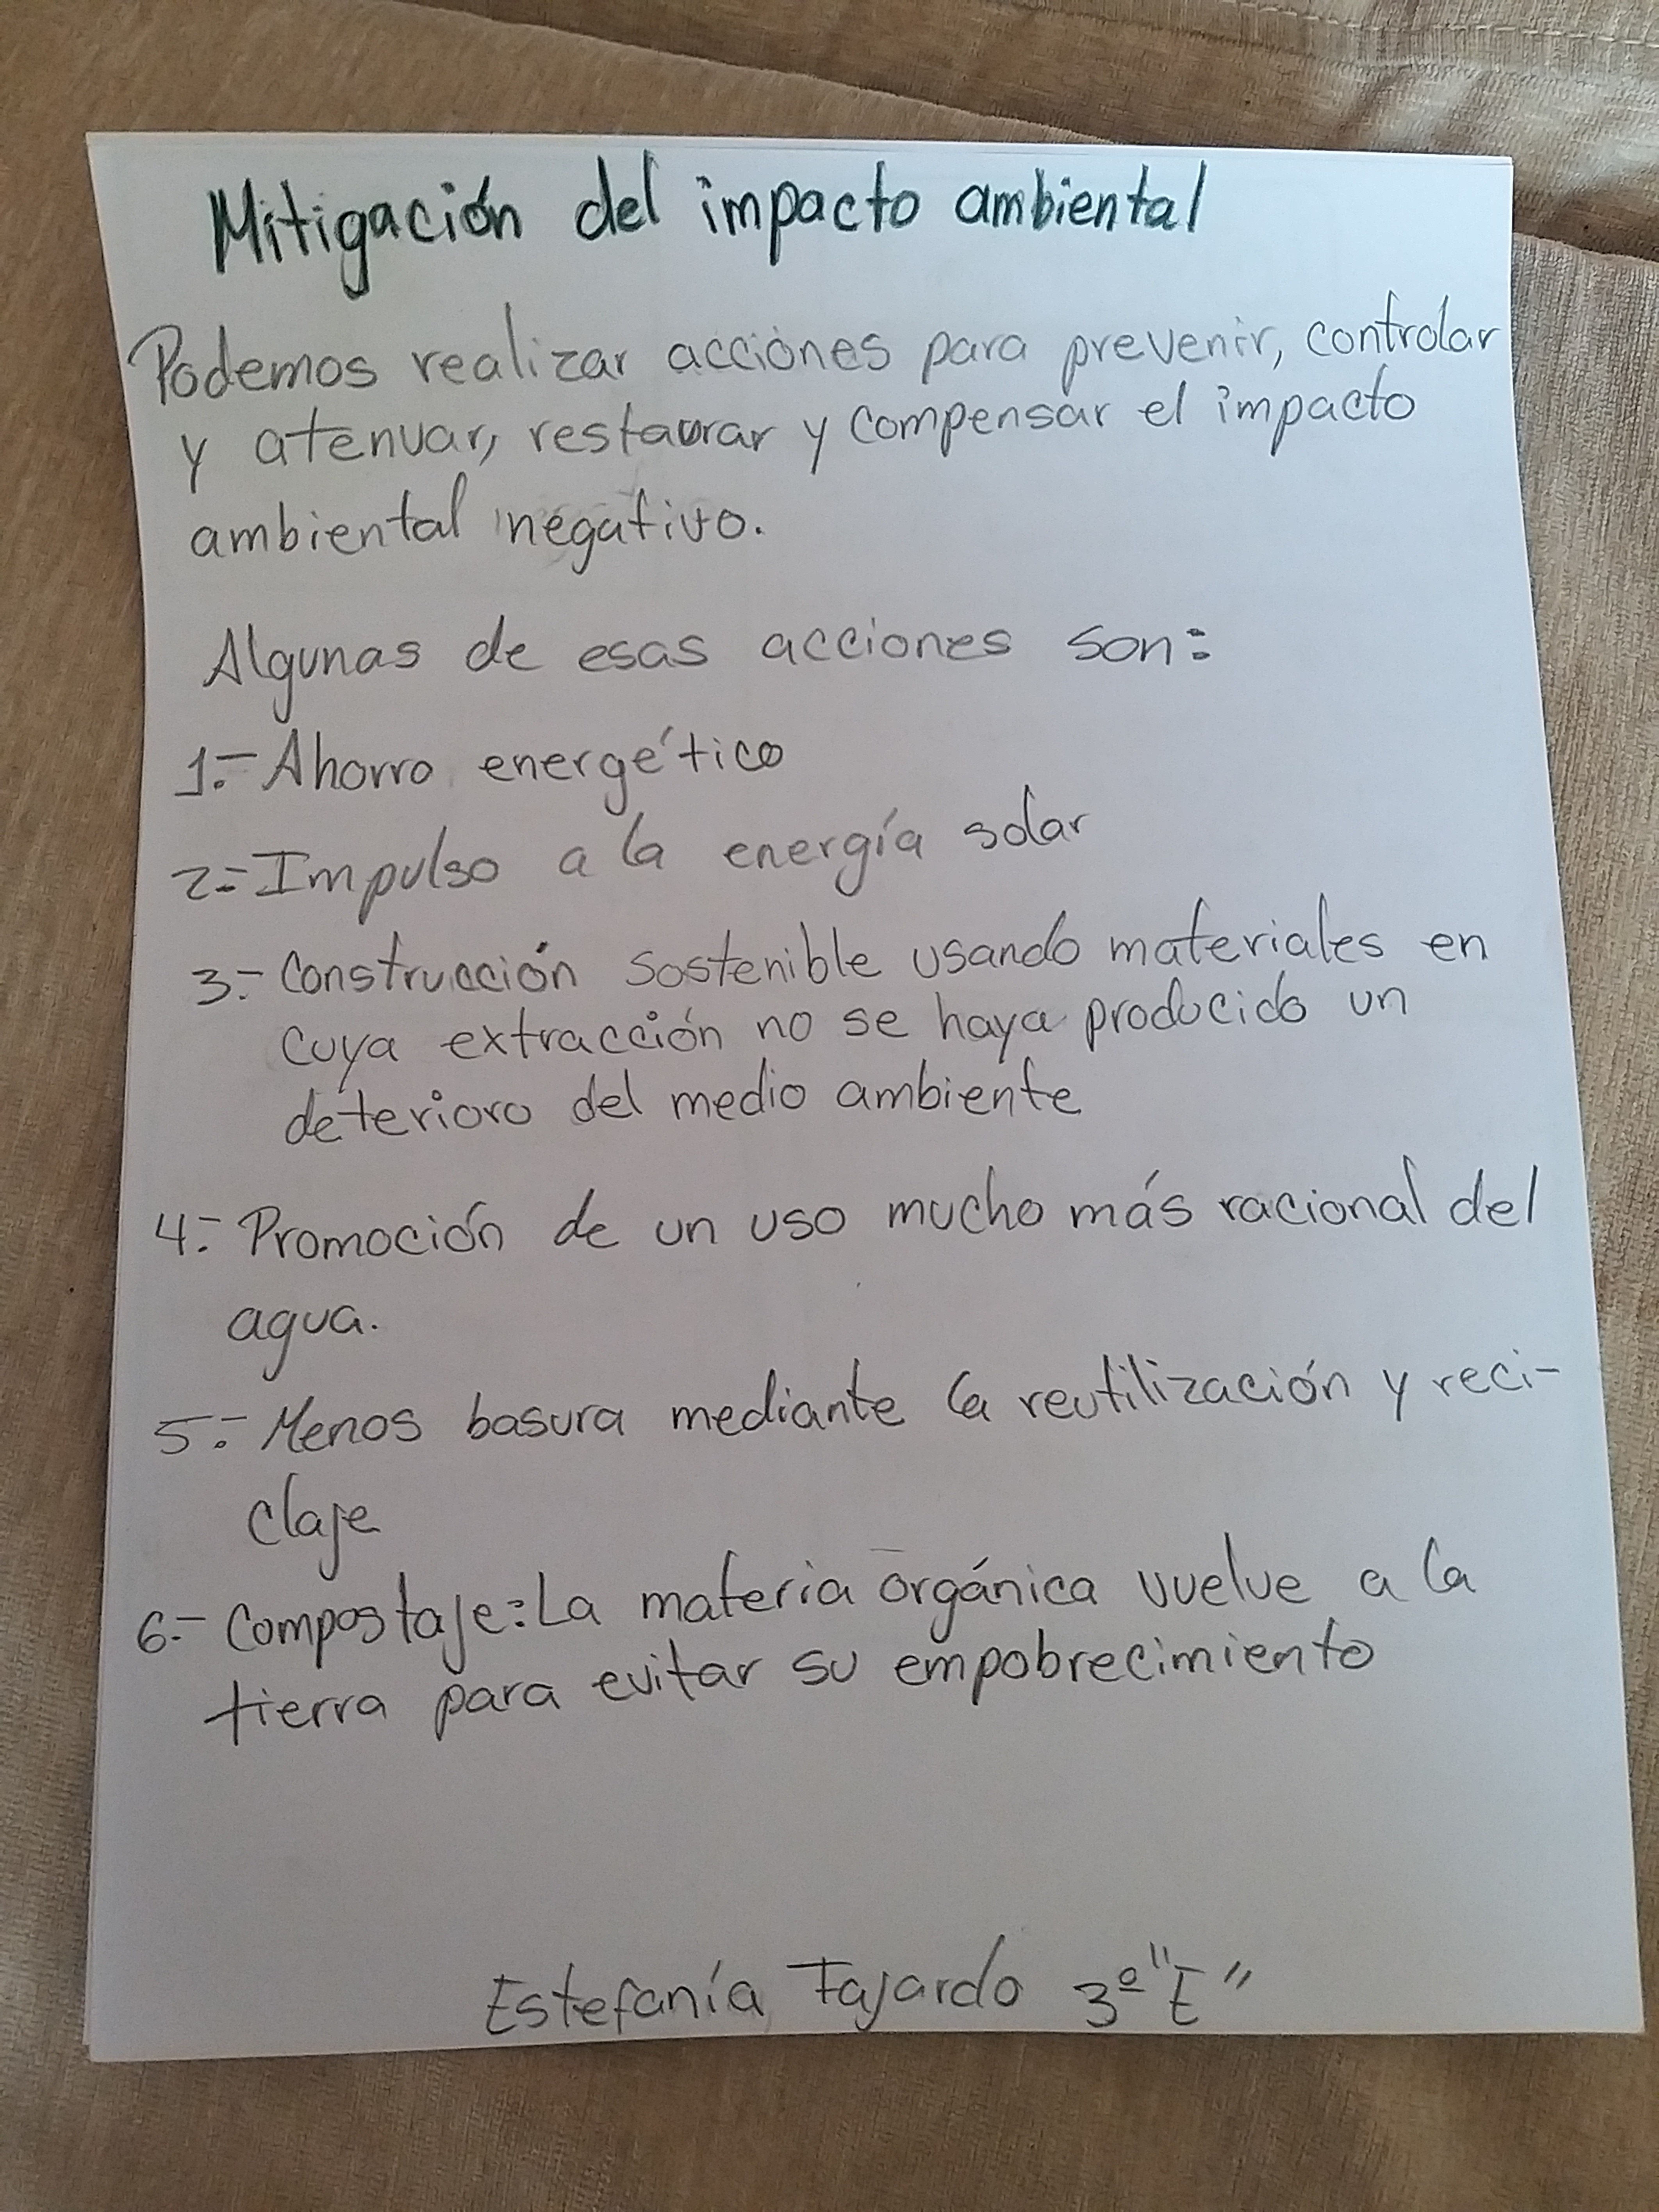 Mitigación del impacto ambiental
Podemos realizar acciones para prevenir, controlar
y atenuar, restaurar y compensar el impacto
ambiental negativo.
Algunas de esas acciones son:
1.- Ahorro energético
2.- Impulso a la energía solar
3.- Construcción sostenible usando materiales en
cuya extracción no se haya producido un
deterioro del medio ambiente
4.- Promoción de un uso mucho más racional del
agua.
5.- Menos basura mediante la reutilización y reci-
claje
6.- Compostaje: La materia orgánica vuelve a la
tierra para evitar su empobrecimiento
Estefanía Fajardo 3º "E"